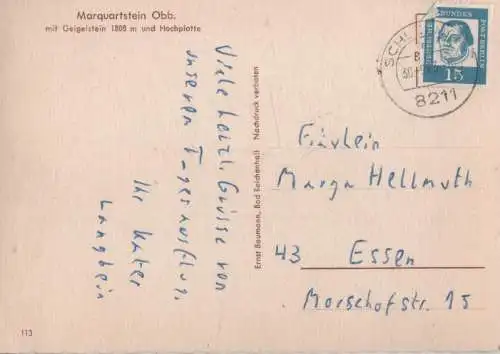 Marquartstein Obb.
mit Geigelstein 1808 m und Hochplatte
Viele herzl. Grüsse von
unserem Tagesausflug.
Ihr Kater
Langbein
Ernst Baumann, Bad Reichenhall Nachdruck verboten
DEUTSCHE BUNDESPOST
15
SCHL
8211
Fräulein
Marga Hellmuth
43 Essen
Morsehofstr. 15
113